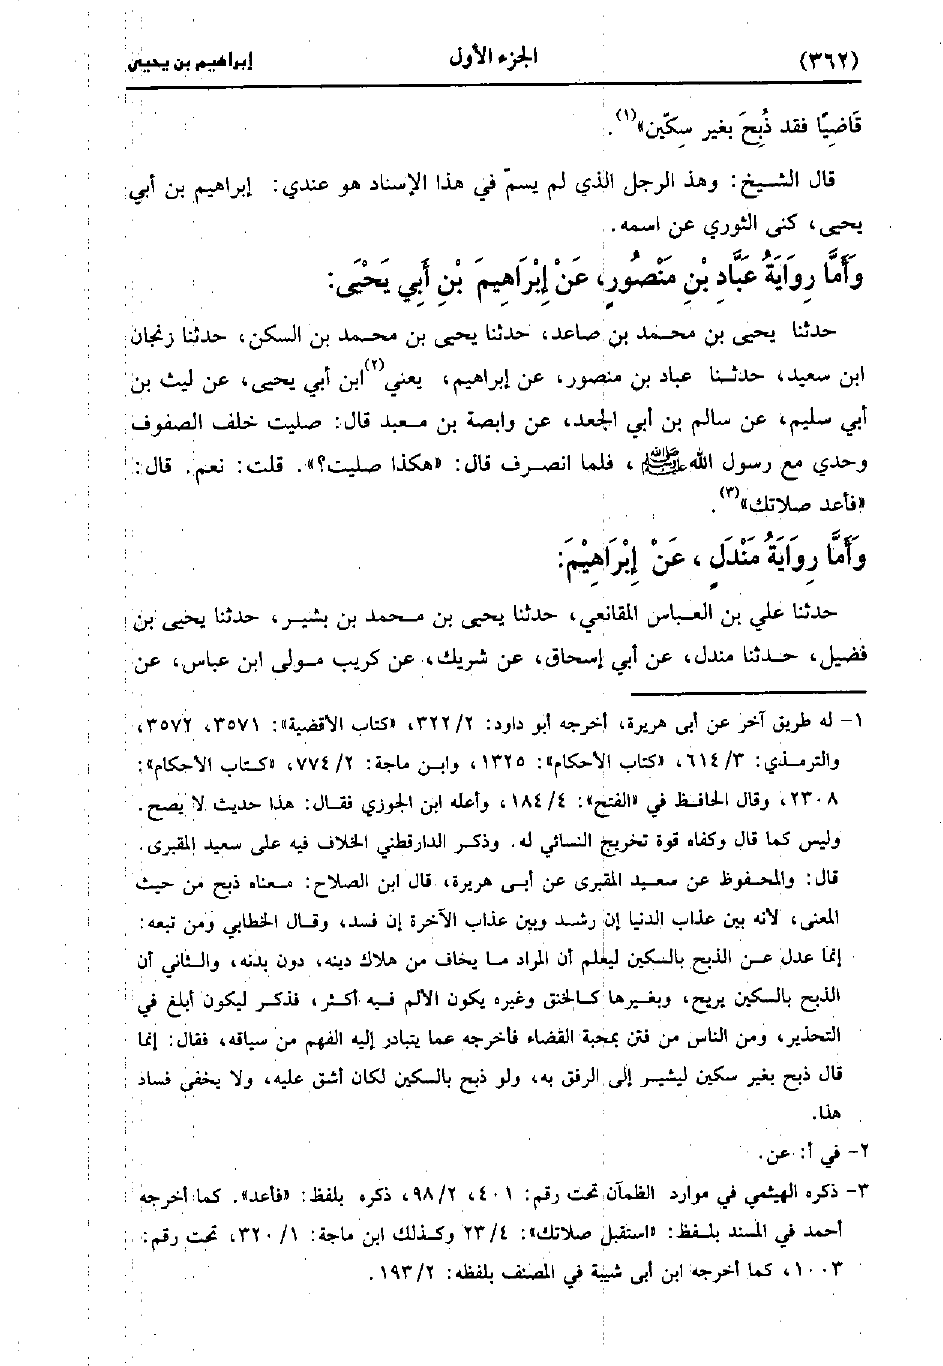 (٣٦٢) الجزء الأول إبراهيم بن يحيى
قَاضِيًا فقد ذُبِحَ بغير سِكّين»(١).
قال الشيخ: وهذ الرجل الذي لم يسمّ في هذا الإسناد هو عندي: إبراهيم بن أبي
يحيى، كنى الثوري عن اسمه.
وَأَمَّا رِوَايَةُ عَبَّادِ بْنِ مَنْصُورٍ، عَنْ إِبْرَاهِيمَ بْنِ أَبِي يَحْيَى:
حدثنا يحيى بن محمد بن صاعد، حدثنا يحيى بن محمد بن السكن، حدثنا زنجان
ابن سعيد، حدثنا عباد بن منصور، عن إبراهيم، يعني(٢) ابن أبي يحيى، عن ليث بن
أبي سليم، عن سالم بن أبي الجعد، عن وابصة بن معبد قال: صليت خلف الصفوف
وحدي مع رسول الله ﷺ، فلما انصرف قال: «هكذا صليت؟». قلت: نعم. قال:
«فأعد صلاتك»(٣).
وَأَمَّا رِوَايَةُ مَنْدَلٍ، عَنْ إِبْرَاهِيْمَ:
حدثنا علي بن العباس المقانعي، حدثنا يحيى بن محمد بن بشير، حدثنا يحيى بن
فضيل، حدثنا مندل، عن أبي إسحاق، عن شريك، عن كريب مولى ابن عباس، عن
١- له طريق آخر عن أبى هريرة، أخرجه أبو داود: ٣٢٢/٢، «كتاب الأقضية»: ٣٥٧١، ٣٥٧٢،
والترمذي: ٦١٤/٣، «كتاب الأحكام»: ١٣٢٥، وابن ماجة: ٧٧٤/٢، «كتاب الأحكام»:
٢٣٠٨، وقال الحافظ في «الفتح»: ١٨٤/٤، وأعله ابن الجوزي فقال: هذا حديث لا يصح.
وليس كما قال وكفاه قوة تخريج النسائي له. وذكر الدارقطني الخلاف فيه على سعيد المقبرى.
قال: والمحفوظ عن سعيد المقبرى عن أبى هريرة، قال ابن الصلاح: معناه ذبح من حيث
المعنى، لأنه بين عذاب الدنيا إن رشد وبين عذاب الآخرة إن فسد، وقال الخطابي ومن تبعه:
إنما عدل عن الذبح بالسكين ليعلم أن المراد ما يخاف من هلاك دينه، دون بدنه، والثاني أن
الذبح بالسكين يريح، وبغيرها كالخنق وغيره يكون الألم فيه أكثر، فذكر ليكون أبلغ في
التحذير، ومن الناس من فتن بمحبة القضاء فأخرجه عما يتبادر إليه الفهم من سياقه، فقال: إنما
قال ذبح بغير سكين ليشير إلى الرفق به، ولو ذبح بالسكين لكان أشق عليه، ولا يخفى فساد
هذا.
٢- في أ: عن.
٣- ذكره الهيثمي في موارد الظمآن تحت رقم: ٤٠١، ٩٨/٢، ذكره بلفظ: «فأعد». كما أخرجه
أحمد في المسند بلفظ: «استقبل صلاتك»: ٢٣/٤ وكذلك ابن ماجة: ٣٢٠/١، تحت رقم:
١٠٠٣، كما أخرجه ابن أبى شيبة في المصنف بلفظه: ١٩٣/٢.